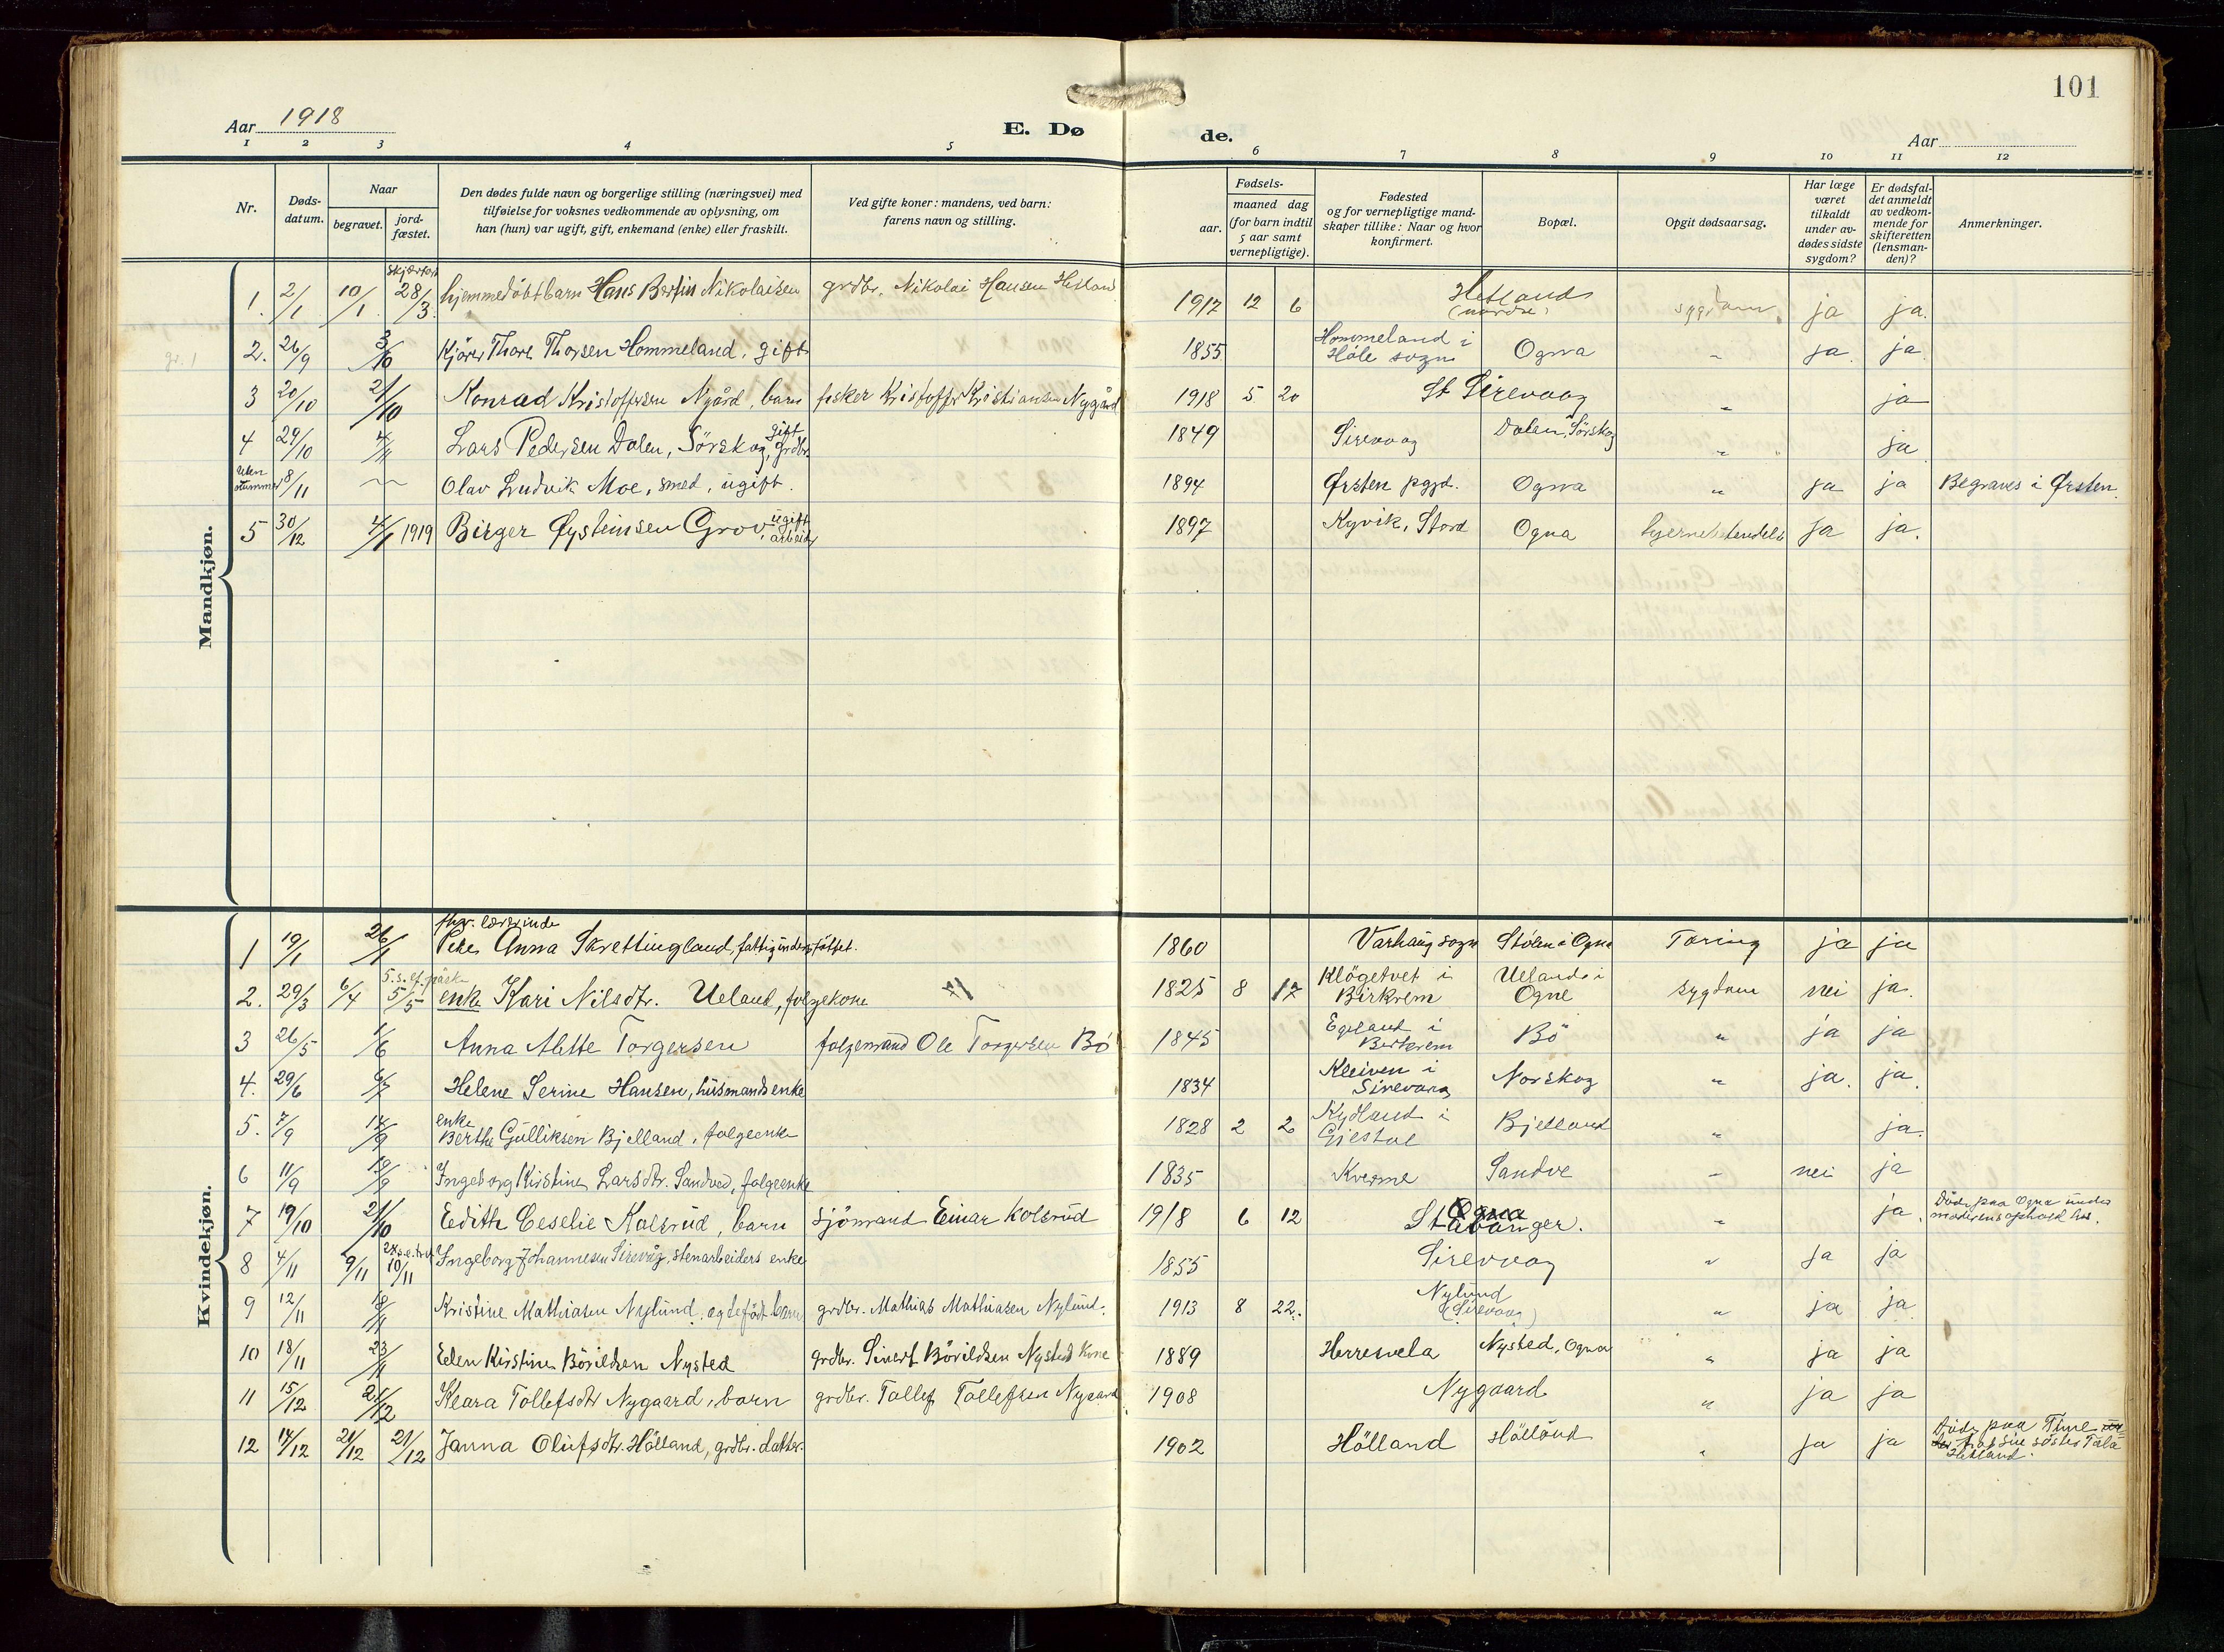 101
Aar 1918
E. Dø de.
Aar
1 2 3 4 5 6 7 8 9 10 11 12
Nr.
Døds-
datum.
Naar
begravet.
jord-
fæstet.
Den dødes fulde navn og borgerlige stilling (næringsvei) med
tilføielse for voksnes vedkommende av oplysning, om
han (hun) var ugift, gift, enkemand (enke) eller fraskilt.
Ved gifte koner: mandens, ved barn:
farens navn og stilling.
Fødsels-
aar.
maaned dag
(for barn indtil
5 aar samt
vernepligtige).
Fødested
og for vernepligtige mand-
skaper tillike: Naar og hvor
konfirmert.
Bopæl.
Opgit dødsaarsag.
Har læge
været
tilkaldt
under av-
dødes sidste
sygdom?
Er dødsfal-
det anmeldt
av vedkom-
mende for
skifteretten
(lensman-
den)?
Anmerkninger.
Mandkjøn.
1. 2/1 10/1 28/3. hjemmedöbt barn Hans Bertin Nikolaisen grdbr. Nikolai Hansen Hetland 1917 12 6 Hetland sygdom ja ja.
2. 26/9 3/10 Kjörer Thore Thorsen Hommeland, gift 1855 Hommeland i
Höle sogn Ogna " ja. ja.
3 20/10 21/10 Konrad Kristoffersen Nygård, barn fisker Kristoffer Kristiansen Nygård 1918 5 20 St Sirevaag " ja
4 29/10 4/11 Lars Pedersen Dalen, Sörskog, gift grdbr. 1849 Sirevaag Dalen, Sörskog " ja
Uten
Nummer 8/11 Olav Ludvik Moe, smed, ugift. 1894 Ørsten pgjd. Ogna " ja ja Begraves i Ørsten.
5 30/12 4/1 1919 Birger Øysteinsen Grov, ugift arbeider 1897 Kyvik, Stord Ogna hjernebetendelse ja ja.
Kvindekjøn.
1 19/1 26/1 fhv. lærerinde
Anna Skrettingland, fattigunderstöttet. 1860 Varhaug sogn Stölen i Ogna Tæring ja ja
2. 29/3 6/4 5/5 enke Kari Nilsdtr. Ueland, folgekone 1825 8 17 Klögetvet i
Birkrem Uelands i
Ogne sygdom nei ja.
3 26/5 1/6 Anna Alette Torgersen folgemand Ole Torgersen Bö 1845 Egeland i
Birkrem Bö " ja ja
4. 29/6 6/7 Helene Serine Hansen, husmands enke 1834 Kleiven i
Sirevaag Norskog " ja. ja.
5. 7/9 14/9 enke
Berthe Gulliksen Bjelland, folgeenke 1828 2 2 Kydland i
Gjestal Bjelland " ja.
6 11/9 19/9 Ingeborg Kirstine Larsdtr. Sandved, folgeenke 1835 Kverme Sandve " nei ja
7 19/10 21/10 Eedith Ceselie Kolsrud, barn sjömand Einar Kolsrud 1918 6 12 Ogna
Stavanger. " ja. Död paa Ogna under
moderens ophold her.
8 4/11 9/11 10/11 Ingeborg Johannesen Sirevåg, stenarbeiders enke 1855 Sirevaag " ja ja
9 12/11 18/11 Kristine Mathiasen Nylund, egtefödt barn grdbr. Mathias Mathiasen Nylund. 1913 8 22. Nylund
(Sirevaag) " ja ja
10 18/11 23/11 Elen Kirstine Börildsen Nysted grdbr. Sivert Börildsen Nysteds kone 1889 Herresvela Nysted, Ogna " ja ja
11 15/12 21/12 Klara Tollefsdtr Nygaard, barn grdbr. Tollef Tollefsen Nygaard 1908 Nygaard " ja ja
12 14/12 21/12 21/12 Janna Olufsdtr. Hölland, grdbr. datter. 1902 Hölland Hölland " ja ja Död paa Time
hos sin söster Tala
Hetland.